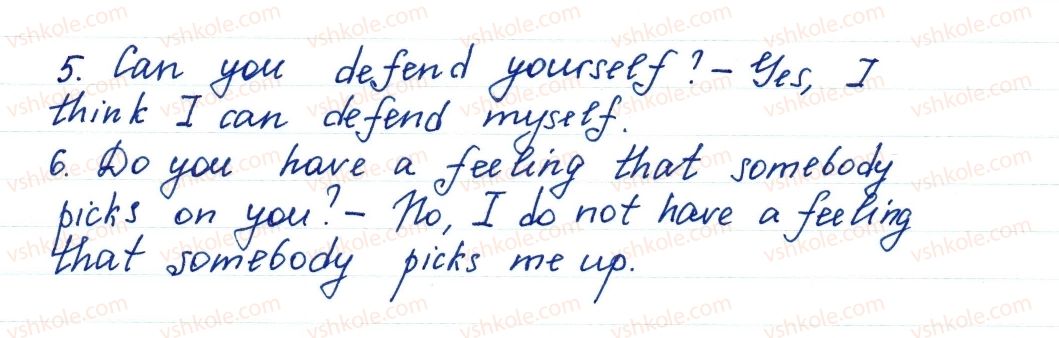 5. Can you defend yourself? - Yes, I
think I can defend myself.
6. Do you have a feeling that somebody
picks on you? - No, I do not have a feeling
that somebody picks me up.
vshkole.com